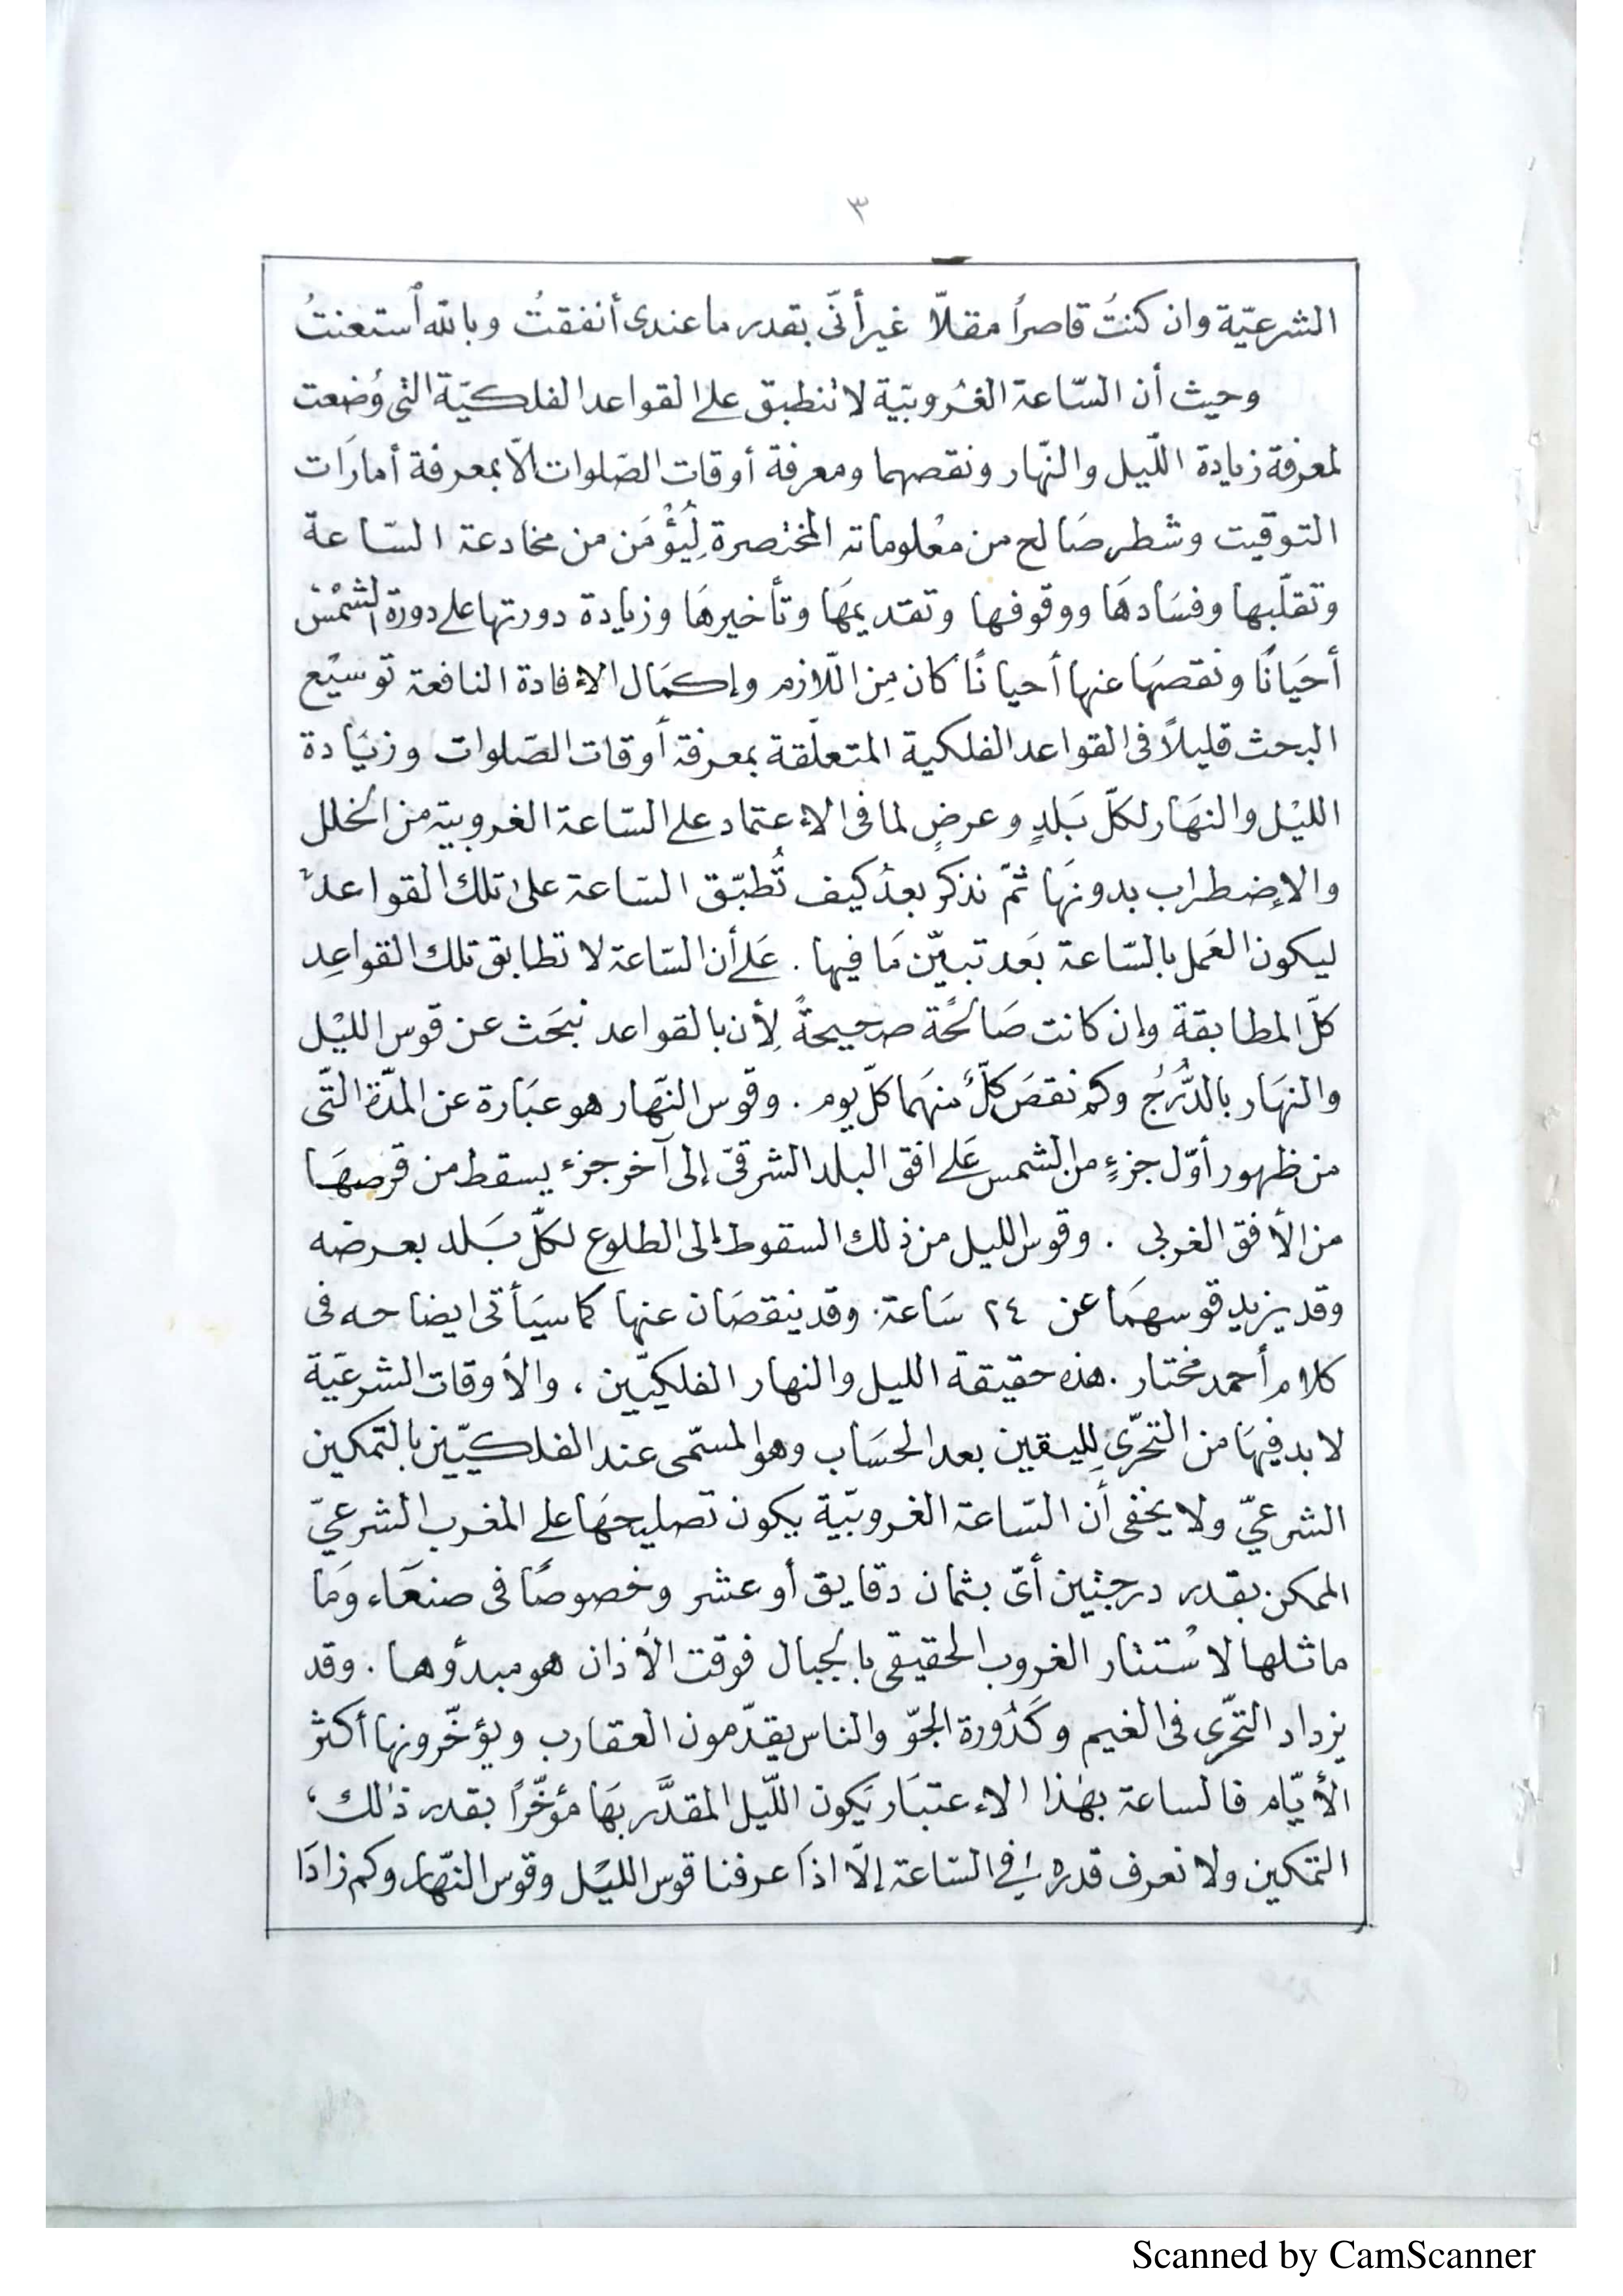 ٣
الشرعيّة وان كنتُ قاصراً مقلاّ غير أنّى بقدر ما عندى أنفقتُ وبالله أستعنتُ
وحيث أن السّاعة الغُروبيّة لا تنطبق على القواعد الفلكيّة التى وُضعت
لمعرفة زيادة اللّيل والنّهار ونقصهما ومعرفة أوقات الصّلوات الاّ بمعرفة أمارَات
التوقيت وشطر صَالح من معْلوماته المختصرة لِيُؤْمَن من مخادعة السّاعة
وتقلّبها وفسَادهَا ووقوفها وتقديمهَا وتأخيرهَا وزيادة دورتها على دورة الشمْس
أحيَانًا ونقصهَا عنها أحيانًا كان مِن اللّازم وإكمَال الاءفادة النافعة توسيْع
البحث قليلاً فى القواعد الفلكية المتعلّقة بمعرفة أوقات الصّلوات وزيَادة
الليْل والنهَار لكلّ بَلدٍ وعرضٍ لما فى الاءعتماد على السّاعة الغروبية من الخلل
والإضطراب بدونهَا ثمّ نذكر بعدُ كيف تُطبّق السّاعة على تلك القواعد
ليكون العَمل بالسّاعة بَعد تبيّن مَا فيها . عَلى أن السّاعة لا تطابق تلك القواعِد
كلّ المطابقة وإن كانت صَالحًة صحيحةً لِأن بالقواعد نبحَث عن قوس الليْل
والنهَار بالدُّرُج وكم نقصَ كلٌّ منهَما كلّ يوم . وقوس النّهار هو عبَارة عن المدّة التّى
من ظهور أوّل جزءٍ من الشمس عَلى افق البلد الشرقىّ إلى آخر جزء يسقط من قرصهَا
من الأفق الغربى . وقوس الليل من ذلك السقوط إلى الطلوع لكلّ بَلد بعرضه
وقد يزيد قوسهمَا عن ٢٤ سَاعة . وقد ينقصَان عنها كما سيَأتى ايضاحه فى
كلام أحمد مختار . هذه حقيقة الليل والنهار الفلكيّين ، والأوقات الشرعيّة
لا بد فيهَا من التحرّى لِليقين بعد الحسَاب وهو المسمّى عند الفلكيّين بالتمكين
الشرعيّ ولا يخفى أن السّاعة الغروبيّة يكون تصليحهَا على المغرب الشرعيّ
الممكن بقدر درجتين أىّ بثمان دقايق أو عشر وخصوصًا فى صنعَاء وَمَا
ماثلها لاسْتتار الغروب الحقيقى بالجبال فوقت الأذان هو مبدؤها . وقد
يزداد التحّرى فى الغيم وكَدُورة الجوّ والناس يقدّمون العقارب ويؤخّرونها أكثر
الأيّام فالساعة بهٰذا الاءعتبَار يَكون اللّيل المقدَّر بهَا مؤخّراً بقدر ذالك ،
التمكين ولا نعرف قدره فى السّاعة إلّا اذَا عرفنا قوس الليْل وقوس النّهار وكم زادَا
Scanned by CamScanner